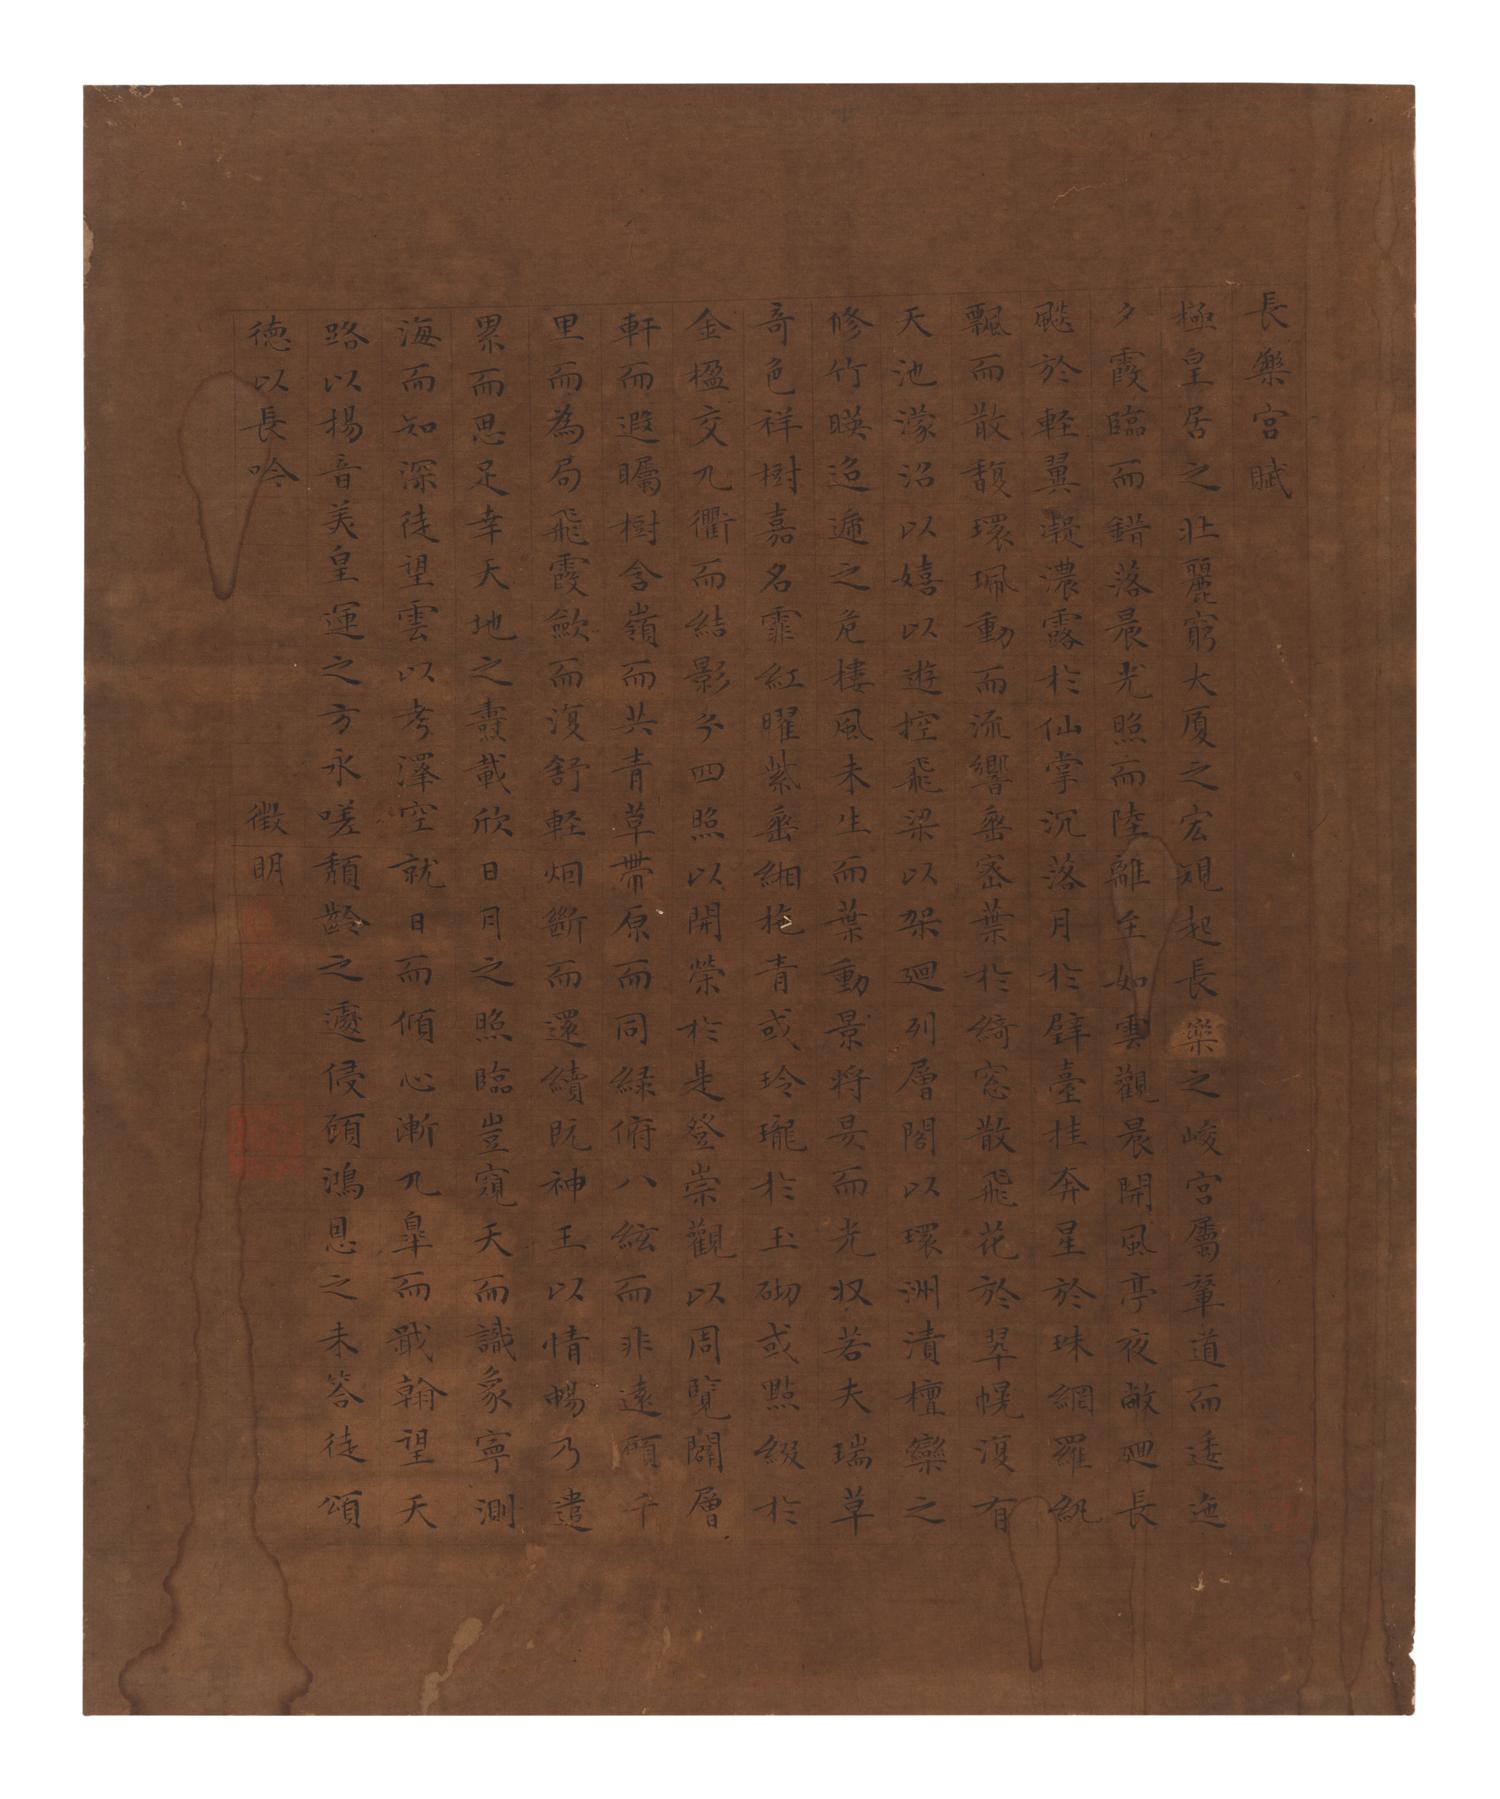 長樂宮賦
極皇居之壯麗窮大厦之宏規起長樂之峻宮屬輦道而逶迤
夕霞臨而錯落晨光照而陸離至如雲觀晨開風亭夜敞廻長
颷於輕翼凝濃露於仙掌沉落月於璧臺挂奔星於珠網羅紈
飄而散馥環珮動而流響垂密葉於綺窓散飛花於翠幌復有
天池濛沼以嬉以遊控飛梁以架廻列層閣以環洲漬檀欒之
修竹暎迢遞之危樓風未生而葉動景將昃而光收若夫瑞草
奇色祥樹嘉名霏紅曜紫垂緗拖青或玲瓏於玉砌或點綴於
金楹交九衢而結影分四照以開榮於是登崇觀以周覽闢層
軒而遐矚樹含嶺而共青草帶原而同緑俯八紘而非遠頋千
里而為局飛霞歛而復舒輕烟斷而還續既神王以情暢乃遣
累而思足幸天地之燾載欣日月之照臨豈窺天而識象寧測
海而知深徒望雲以考澤空就日而傾心漸九皐而戢翰望天
路以揚音美皇運之方永嗟頹齡之遽侵頋鴻恩之未答徒頌
德以長吟
徵明